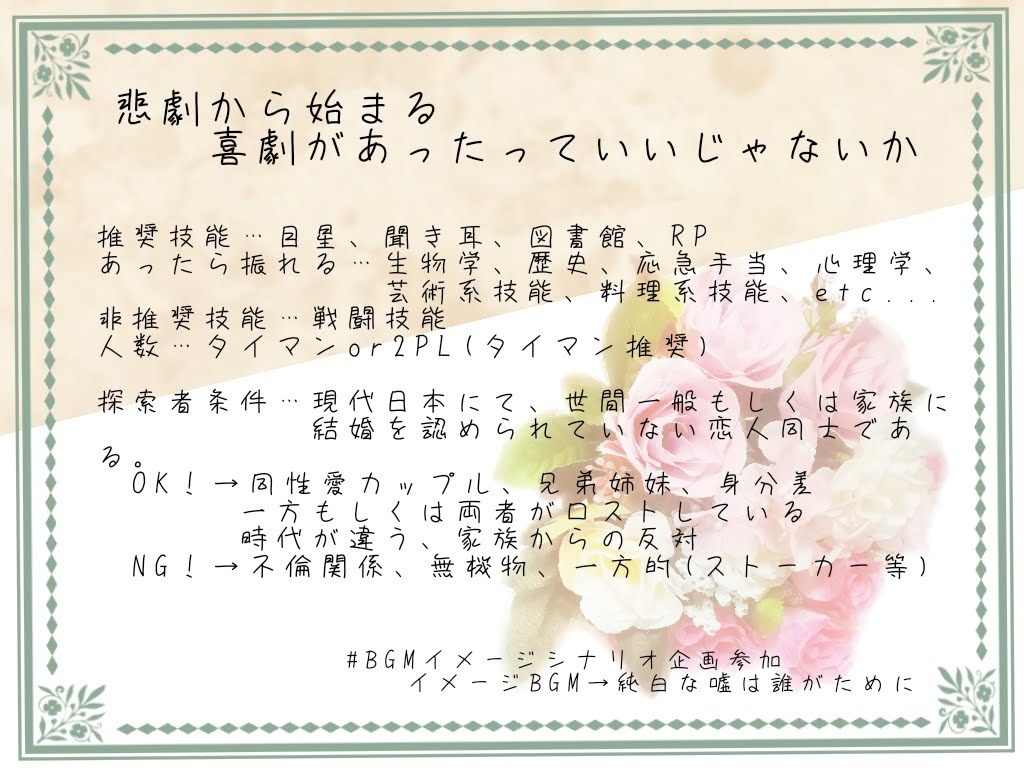 悲劇から始まる
喜劇があったっていいじゃないか
推奨技能…目星、聞き耳、図書館、RP
あったら振れる…生物学、歴史、応急手当、心理学、
芸術系技能、料理系技能、etc...
非推奨技能…戦闘技能
人数…タイマンor2PL(タイマン推奨)
探索者条件…現代日本にて、世間一般もしくは家族に
結婚を認められていない恋人同士であ
る。
OK！→同性愛カップル、兄弟姉妹、身分差
一方もしくは両者がロストしている
時代が違う、家族からの反対
NG！→不倫関係、無機物、一方的(ストーカー等)
#BGMイメージシナリオ企画参加
イメージBGM→純白な嘘は誰がために